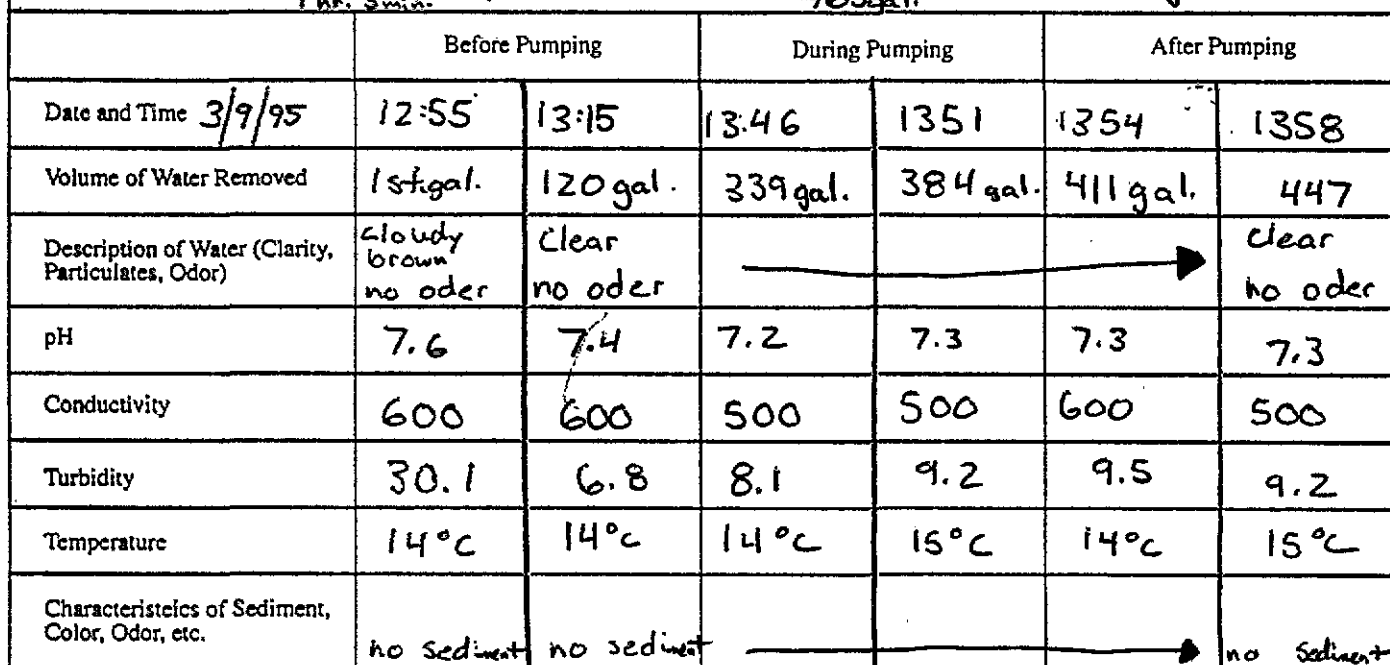 1 hr. 3min. 105gal.
Before Pumping During Pumping After Pumping
Date and Time 3/9/95 12:55 13:15 13:46 1351 1354 1358
Volume of Water Removed 1st gal. 120 gal. 339 gal. 384 gal. 411 gal. 447
Description of Water (Clarity, Particulates, Odor) cloudy brown no oder Clear no oder clear no oder
pH 7.6 7.4 7.2 7.3 7.3 7.3
Conductivity 600 600 500 500 600 500
Turbidity 30.1 6.8 8.1 9.2 9.5 9.2
Temperature 14°C 14°C 14°C 15°C 14°C 15°C
Characteristeics of Sediment, Color, Odor, etc. no sediment no sediment no sediment